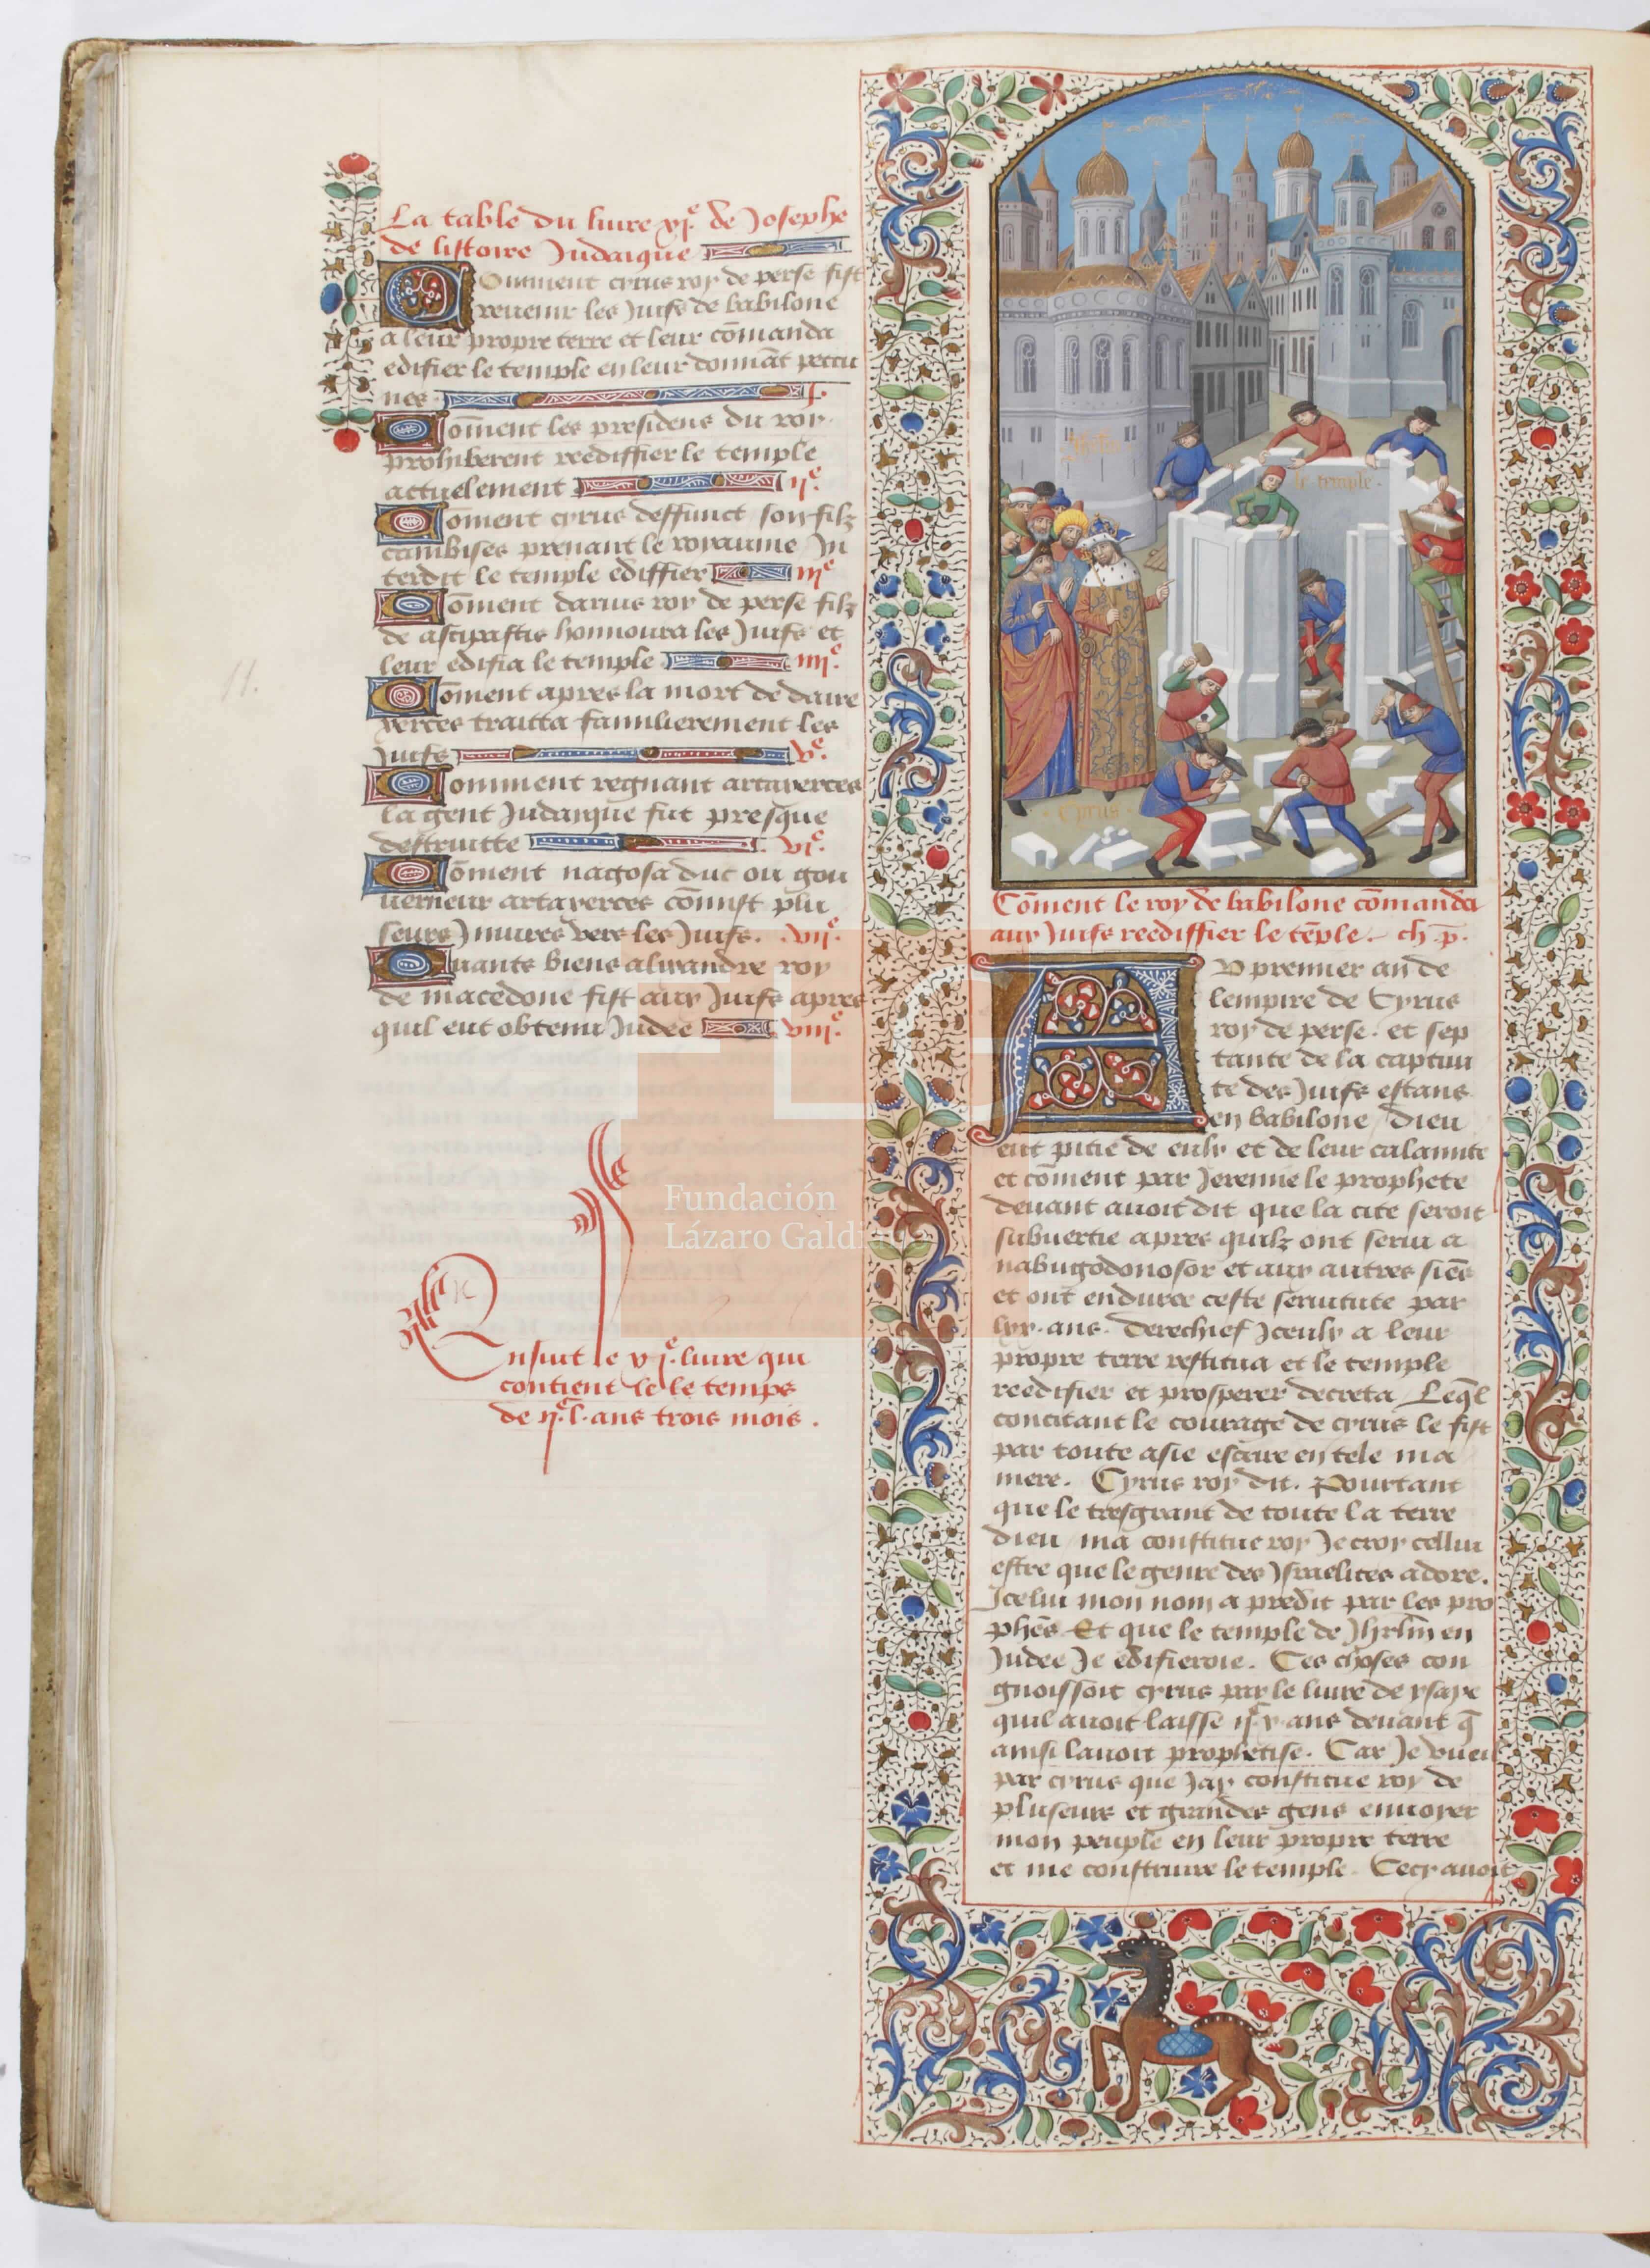 La table du liure xj.e de Josephe
de listoire Judaique
Comment cyrus roy de perse fist
reuenir les Juifs de babilone
a leur propre terre et leur cōmanda
edifier le temple en leur donnāt peccu
nes. j.
Cōment les presidens du roy
prohiberent reediffier le temple
actuelement ij.e
Cōment cyrus deffunct son filz
cambises prenant le royaume In
terdit le temple ediffier iij.e
Cōment darius roy de perse filz
de astipastis honnoura les Juifs et
leur edifia le temple iiij.e
Cōment apres la mort de daire
xerces traitta familierement les
Juifs v.e
Comment regnant artaxerces
la gent Judaique fut presque
destruitte vj.e
Cōment nagosa duc ou gou
uerneur artaxerces cōmist plu
seurs Iniures vers les Juifs. vij.e
Quants biens alixandre roy
de macedone fist aux Juifs apres
quil eut obtenu Judee viij.e
11.
Ensuit le xj.e liure qui
contient le le temps
de ij.c l. ans trois mois.
le temple.
Cyrus
Cōment le roy de babilone cōmanda
aux Juifs reediffier le tēple. ch. p.
AU premier an de
lempire de Cyrus
roy de perse. et sep
tante de la captiui
te des Juifs estans
en babilone / dieu
eut pitie de eulx et de leur calamite
et cōment par Jeremie le prophete
deuant auoit dit que la cite seroit
subuertie apres quilz ont serui a
nabugodonosor et aux autres siēs
et ont enduree ceste seruitute par
lxx. ans. derechief Iceulx a leur
propre terre restitua et le temple
reedifier et prosperer decreta / Leq̄l
concitant le courage de cyrus le fist
par toute asie escrire en tele ma
niere. Cyrus roy dit. Pourtant
que le tresgrant de toute la terre
dieu / ma constitue roy Je croy cellui
estre que le genre des Israelites adore.
Icelui mon nom a predit par les pro
phēs Et que le temple de Jhrl̄m en
Judee Je edifieroie. Ces choses con
gnoissoit cyrus par le liure de ysaye
quil auoit laisse ij.c x. ans deuant q̄
ainsi lauoit prophetise. Car Je vueil
par cyrus que Jay constitue roy de
pluseurs et grandes gens enuoyer
mon peuple en leur propre terre
et me construire le temple. Cecy auoit
FLG
Fundación
Lázaro Galdiano